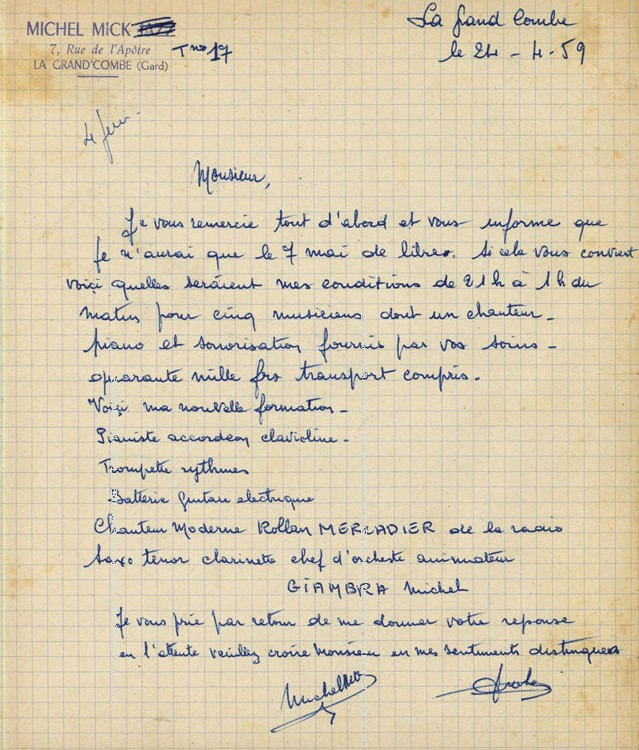 MICHEL MICK
7, Rue de l'Apôtre
LA GRAND'COMBE (Gard)
T no 17
La Grand Combe
le 24 - 4 - 59
Monsieur,
Je vous remercie tout d'abord et vous informe que
je n'aurai que le 7 mai de libres. Si cela vous convient
voiçi quelles seraient mes conditions de 21h à 1h du
matin pour cinq musiciens dont un chanteur_
piano et sonorisation fournis par vos soins_
quarante mille frs transport compris.
Voiçi ma nouvelle formation_
Pianiste accordeon clavioline_
Trompette rythmes
Batterie guitare electrique
Chanteur Moderne Rollan MERCADIER de la radio
Saxo tenor clarinette chef d'orchestre animateur
GIAMBRA Michel
Je vous prie par retour de me donner votre reponse
en l'attente veuillez croire Monsieur en mes sentiments distingués